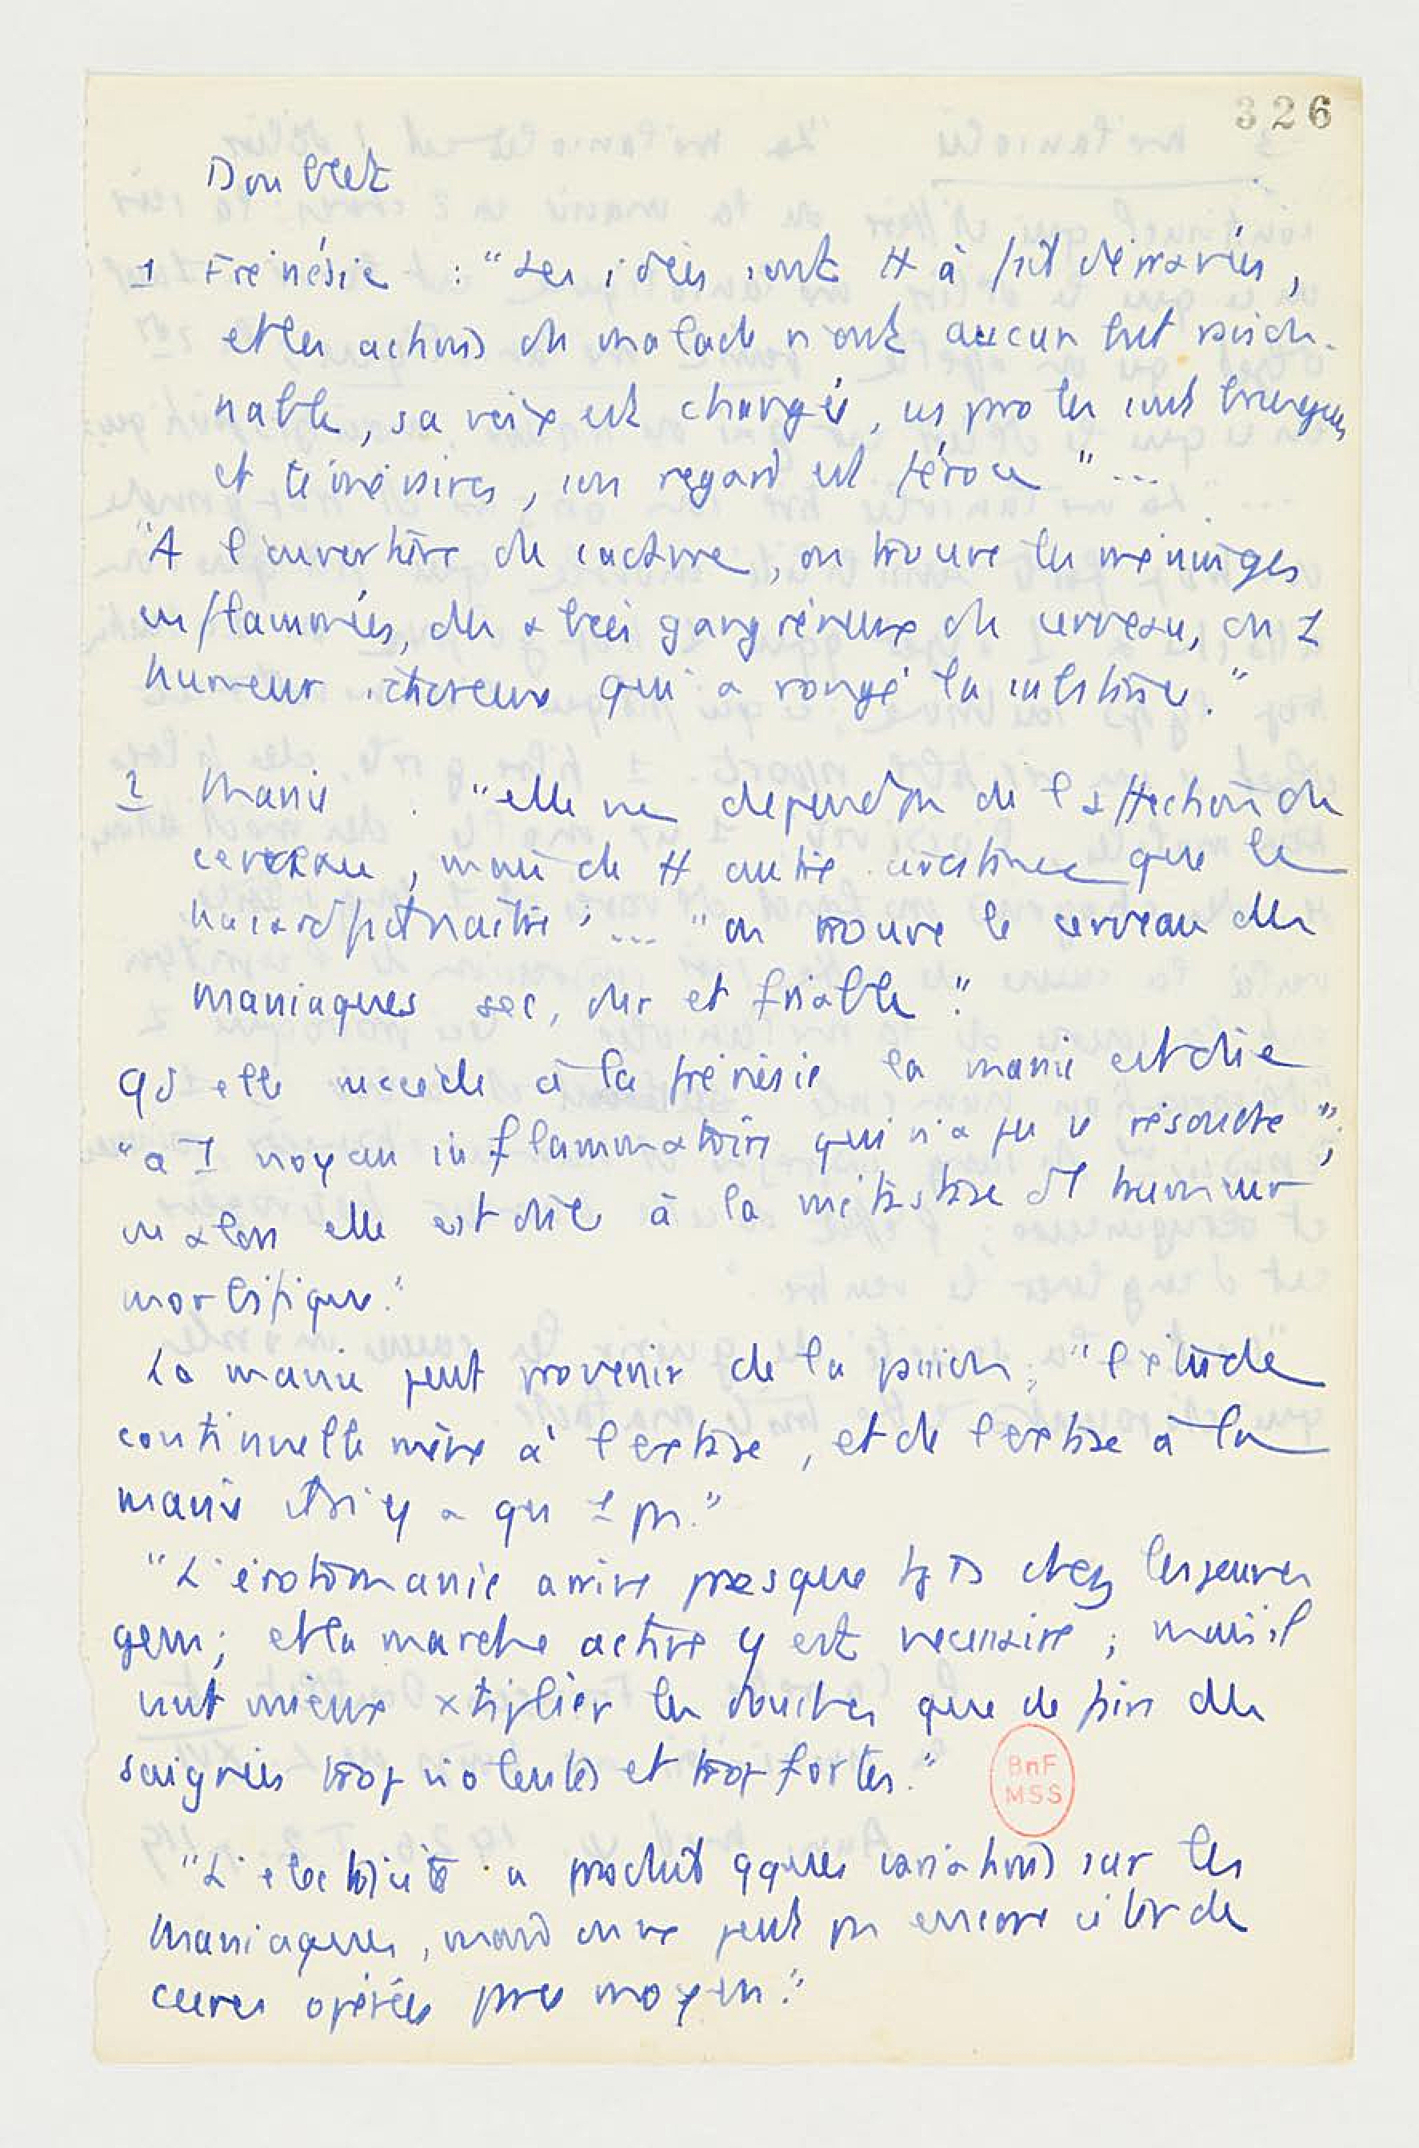 326
Doublet
1 Frénésie : "Les idées sont tt à fait dépravées,
et les actions du malade n'ont aucun but raison-
nable, sa voix est changée, ses propos sont brusques
et téméraires, son regard est féroce" ...
"A l'ouverture du cadavre, on trouve les méninges
enflammées, des abcès gangréneux du cerveau, ou 1
humeur ichoreuse qui a rongé la substance."
2 Manie . "elle ne dépend pas de l'affection du
cerveau, mais de tt autre circonstance que le
hasard fait naître" ... "on trouve le cerveau des
maniaques sec, dur et friable".
Qd elle succède à la frénésie la manie est due
"à 1 noyau inflammatoire qui n'a pu se résoudre";
elle est due à la métastase d'1 humeur
morbifique."
La manie peut provenir de la passion; "l'étude
continuelle mène à l'extase, et de l'extase à la
manie il n'y a qu'1 pas."
"L'érotomanie arrive presque tjrs chez les jeunes
gens; et la marche active y est nécessaire; mais il
vaut mieux xtiplier les douches que de faire des
saignées trop violentes et trop fortes."
BnF
MSS
"L'électricité a produit qques variations sur les
maniaques, mais on ne peut pas encore citer de
cures opérées par ce moyen."